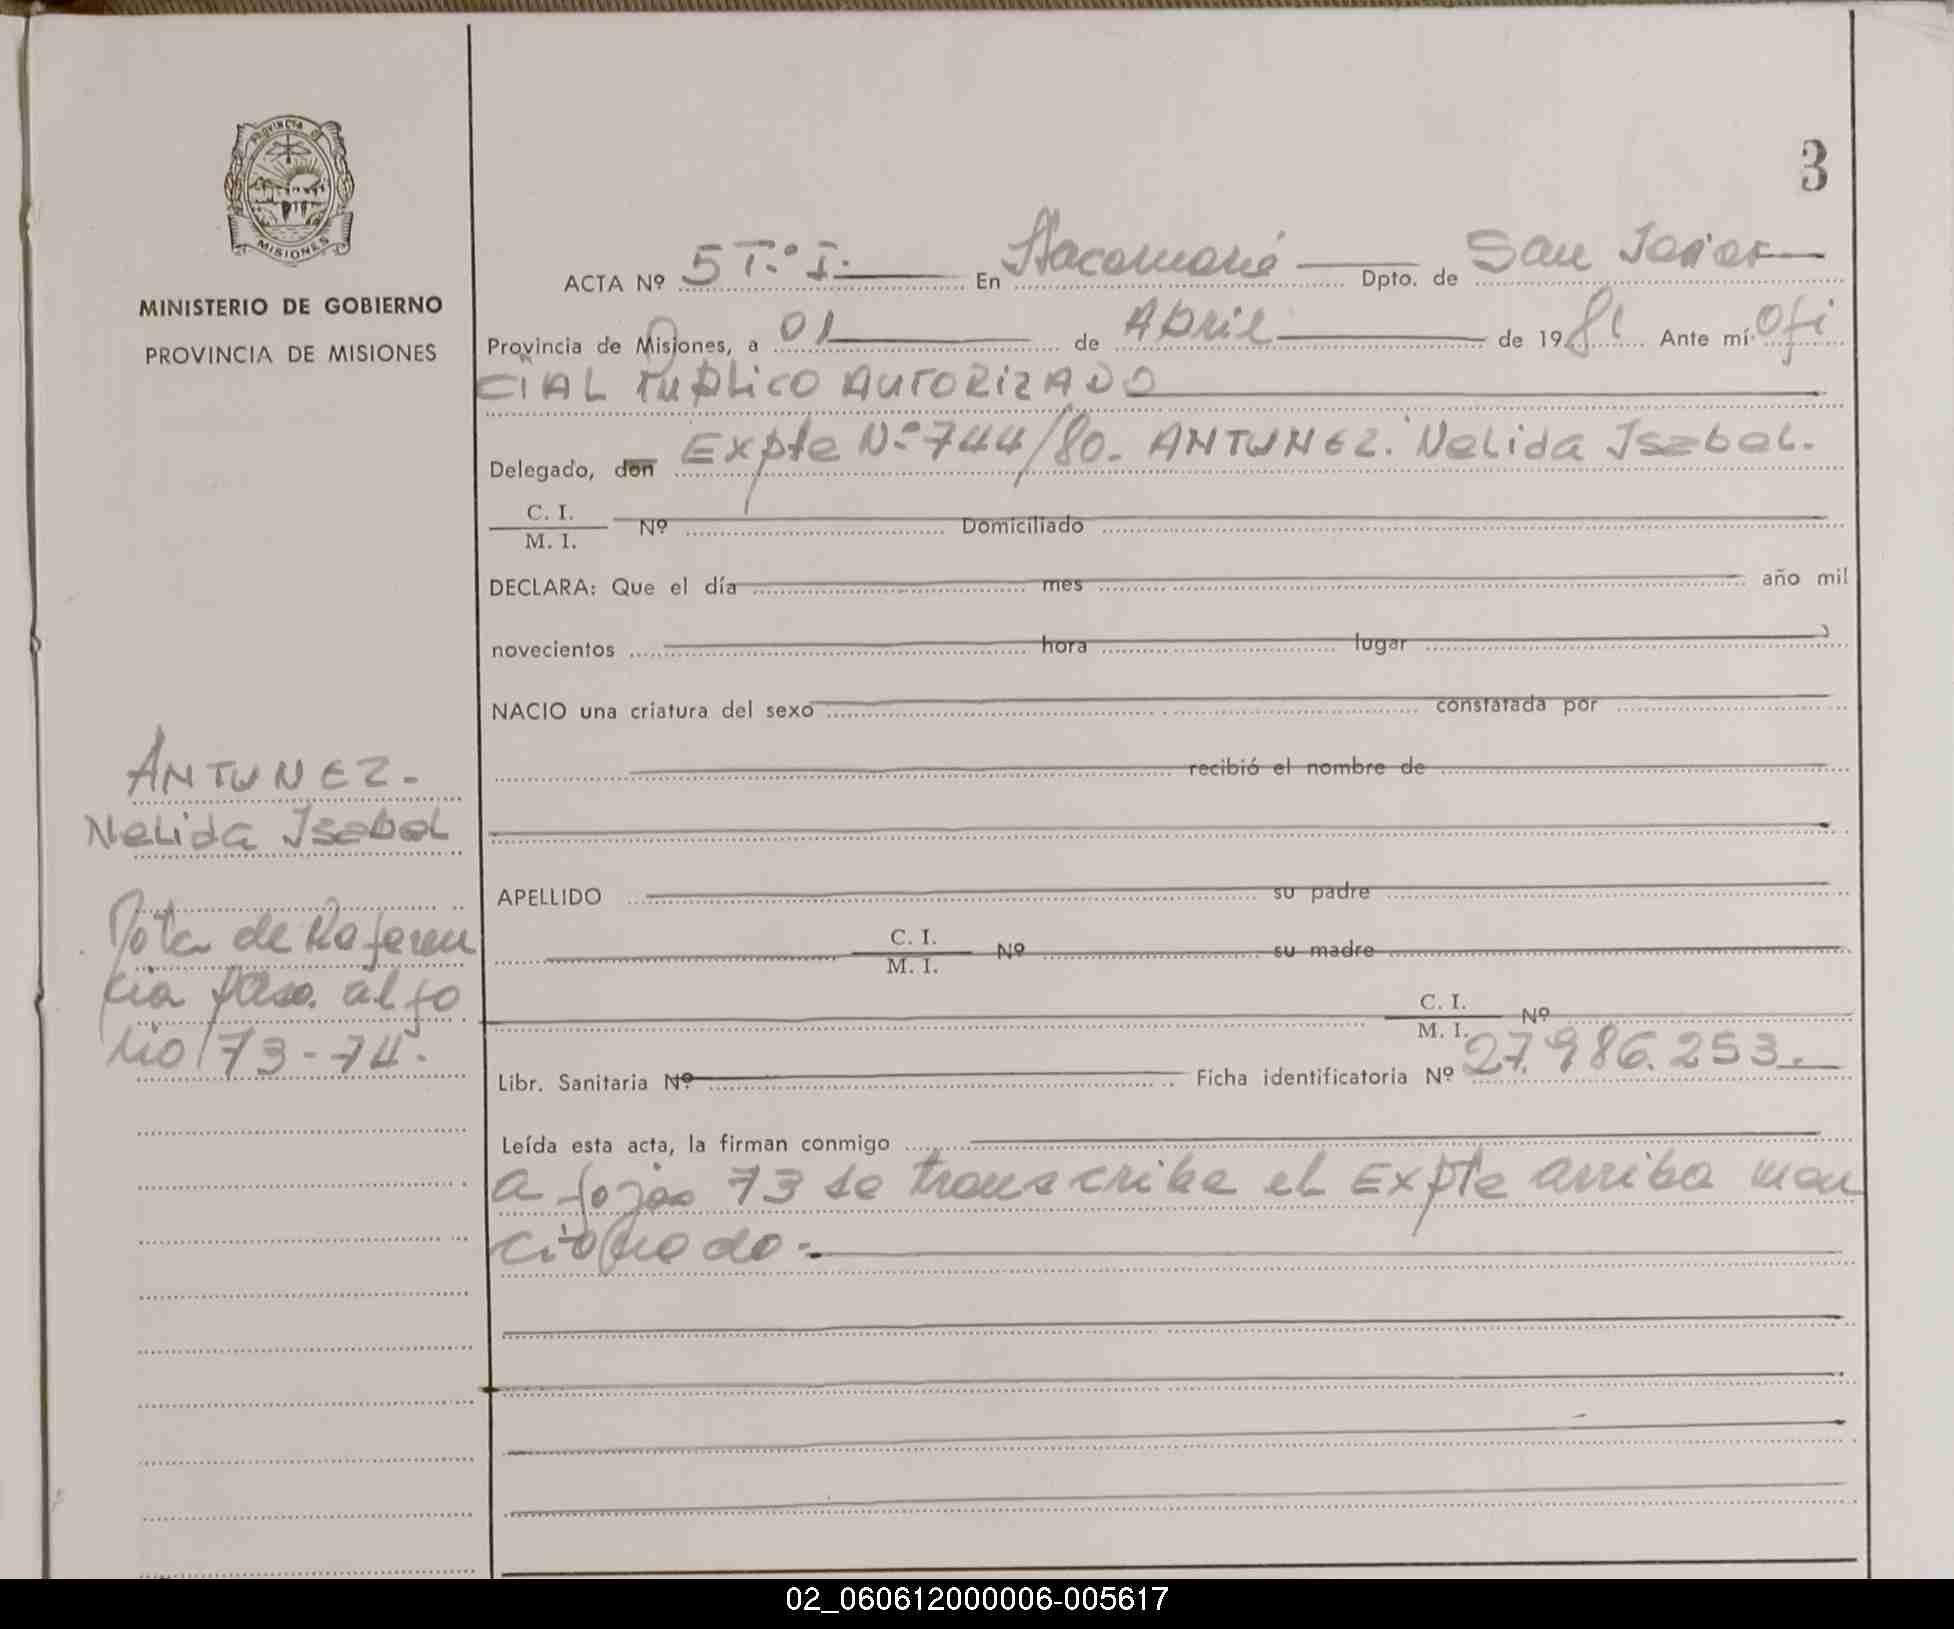 PROVINCIA DE
MISIONES
MINISTERIO DE GOBIERNO
PROVINCIA DE MISIONES
3
ACTA Nº 5 T.º I. En Itacaruaré Dpto. de San Javier
Provincia de Misiones, a 01 de Abril de 1981 Ante mí Ofi
CIAL PUBLICO AUTORIZADO
Delegado, don Expte Nº 744/80. ANTUNEZ. Nelida Isabel.
C. I.
M. I. Nº Domiciliado
DECLARA: Que el día mes año mil
novecientos hora lugar
NACIO una criatura del sexo constatada por
recibió el nombre de
APELLIDO su padre
C. I.
M. I. Nº su madre
C. I.
M. I. Nº
Libr. Sanitaria Nº Ficha identificatoria Nº 27.986.253.
Leída esta acta, la firman conmigo
a fojas 73 se transcribe el Expte arriba men
cionado.-
ANTUNEZ.
Nelida Isabel
Nota de Referen
cia al fo
lio 73-74.
02_060612000006-005617